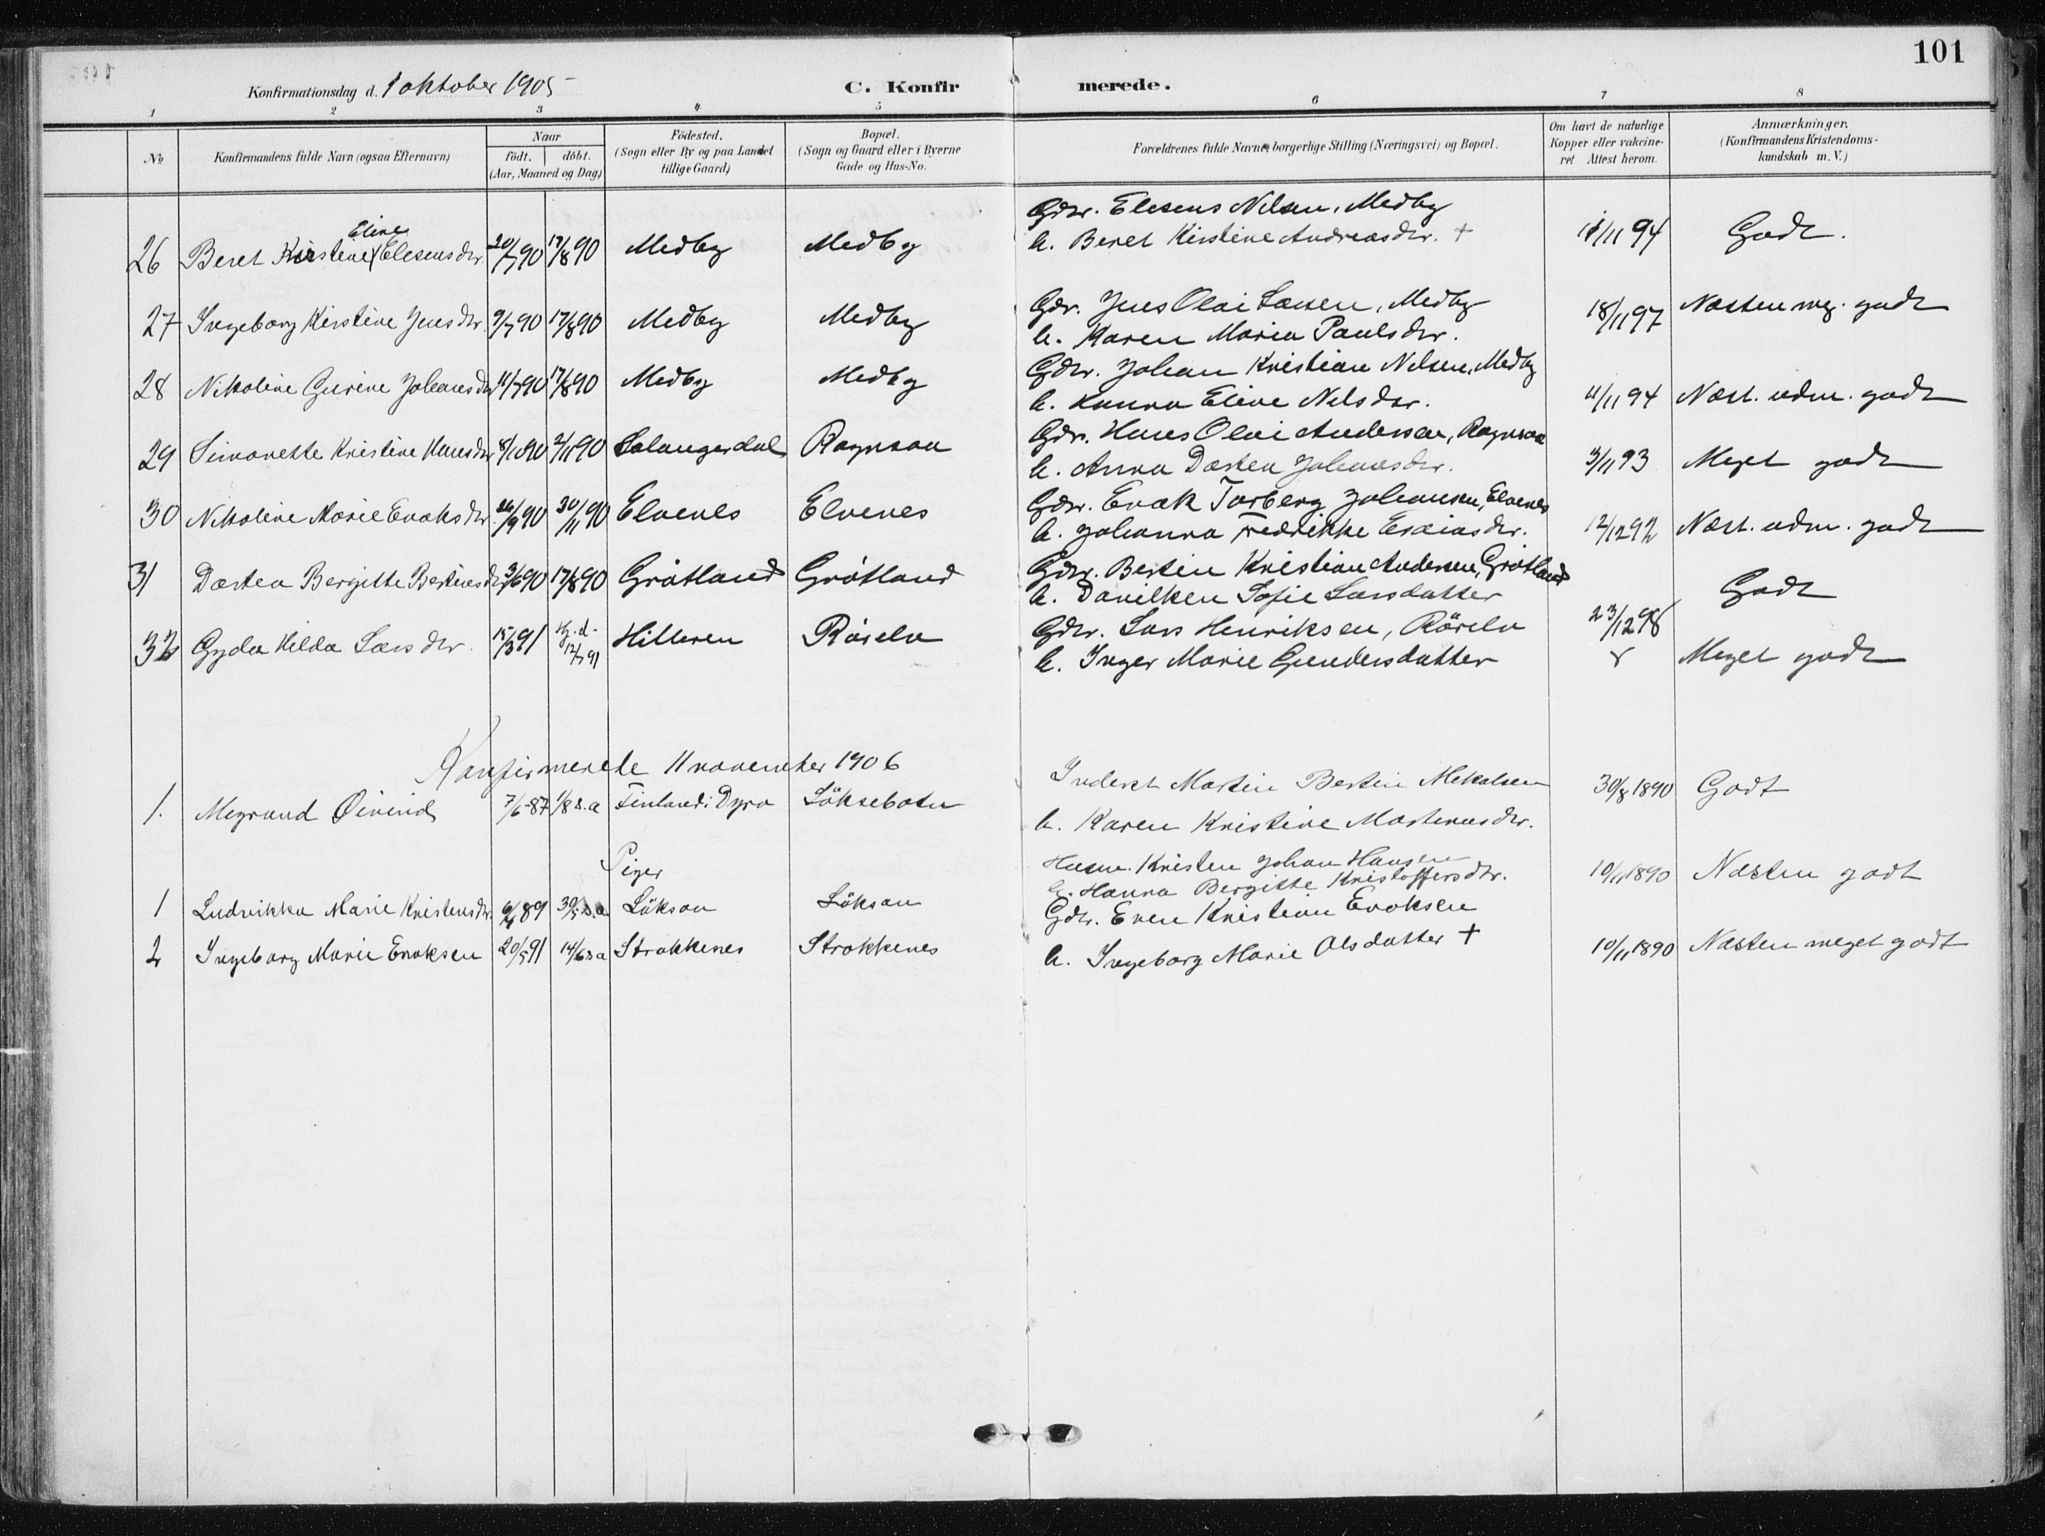 101
Konfirmationsdag d. 1 oktober 1905
C. Konfirmerede.
1 2 3 4 5 6 7 8
No
Konfirmandens fulde Navn (ogsaa Efternavn)
Naar
födt. döbt.
(Aar, Maaned og Dag)
Födested.
(Sogn eller By og paa Landet
tillige Gaard)
Bopæl.
(Sogn og Gaard eller i Byerne
Gade og Hus-No.
Forældrenes fulde Navne, borgerlige Stilling (Næringsvei) og Bopæl.
Om havt de naturlige
Kopper eller vakcine-
ret Attest herom.
Anmærkninger.
(Konfirmandens Kristendoms-
kundskab m. V.)
Gdr. Elesens Nilsen, Medby
Eline
26 Beret Kirstine Elesensdtr 20/7 90 17/8 90 Medby Medby h. Beret Kirstine Andreasdtr. + 11/11 94 Godt.
Gdr. Jens Olai Larsen, Medby
27 Ingeborg Kirstine Jensdtr. 9/7 90 17/8 90 Medby Medby 18/11 97 Næsten meg. godt
h. Karen Maria Paulsdtr.
Gdr. Johan Kristian Nilsen, Medby
28 Nikoline Gurine Johansdtr 11/7 90 17/8 90 Medby Medby 11/11 94 Næst. udm. godt
h. Hanna Eline Nilsdtr.
Gdr. Hans Olai Andersen, Rognsaa
29 Simonette Kristine Hansdtr 8/10 90 2/11 90 Salangsdal Rognsaa 3/11 93 Meget godt
h. Anna Dorthea Johansdtr.
Gdr. Enok Torberg Johansen, Elvenes
30 Nikoline Marie Enoksdtr. 26/9 90 30/11 90 Elvenes Elvenes 12/12 92 Næst. udm. godt
h. Johanna Fredrikke Esaiasdtr.
Gdr. Bertin Kristian Andersen, Grötland
31 Dortea Bergitte Bertinsdtr 3/6 90 17/8 90 Grötland Grötland Godt
h. Danilken Sofie Larsdatter
23/12 98
Gdr. Lars Henriksen, Röselv
32 Gyda Hilda Larsdtr. 15/3 91 Hj.d. 12/7 91 Hilleren Röselv Meget godt
h. Inger Marie Gundersdatter
Konfirmerede 11 november 1906
Inderst Martin Bertin Mekalsen
1. Megrund Öivind 7/6 87 1/8 s.a Finland i Dyrö Löksebotn 30/8 1890 Godt
h. Karen Kristine Mortensdtr.
Piger
Husm. Kristen Johan Hansen
h. Hanna Bergitte Kristoffersdtr. 10/11 1890 Næsten godt
1 Ludvikka Marie Kristensdtr. 6/4 89 30/5 s.a Löksan Löksan
Gdr. Even Kristian Enoksen
2 Ingeborg Marie Enoksen 20/5 91 14/6 s.a Strokkenes Strokkenes 10/11 1890 Næsten meget godt
h. Ingeborg Marie Olsdatter +